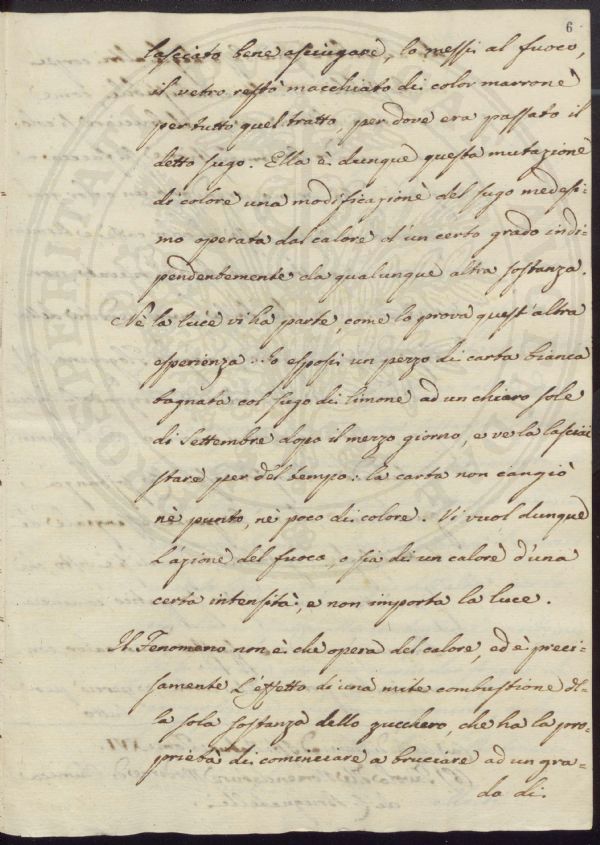 6
lasciato bene asciugare, lo messi al fuoco,
il vetro restò macchiato di color marrone
per tutto quel tratto, per dove era passato il
detto sugo. Ella è dunque questa mutazione
di colore una modificazione del sugo medesi=
mo operata dal calore d'un certo grado indi=
pendentemente da qualunque altra sostanza.
Nè la luce vi ha parte, come lo prova quest'altra
esperienza: Io esposi un pezzo di carta bianca
bagnata col sugo di limone ad un chiaro sole
di Settembre dopo il mezzo giorno, e ve la lasciai
stare per del tempo: la carta non cangiò
nè punto, nè poco di colore. Vi vuol dunque
l'azione del fuoco, o sia di un calore d'una
certa intensità, e non importa la luce.
Il Fenomano non è che opera del calore, ed è preci=
samente l'effetto di una mite combustione del=
la sola sostanza dello zucchero, che ha la pro=
prietà di cominciare a bruciare ad un gra=
do di.